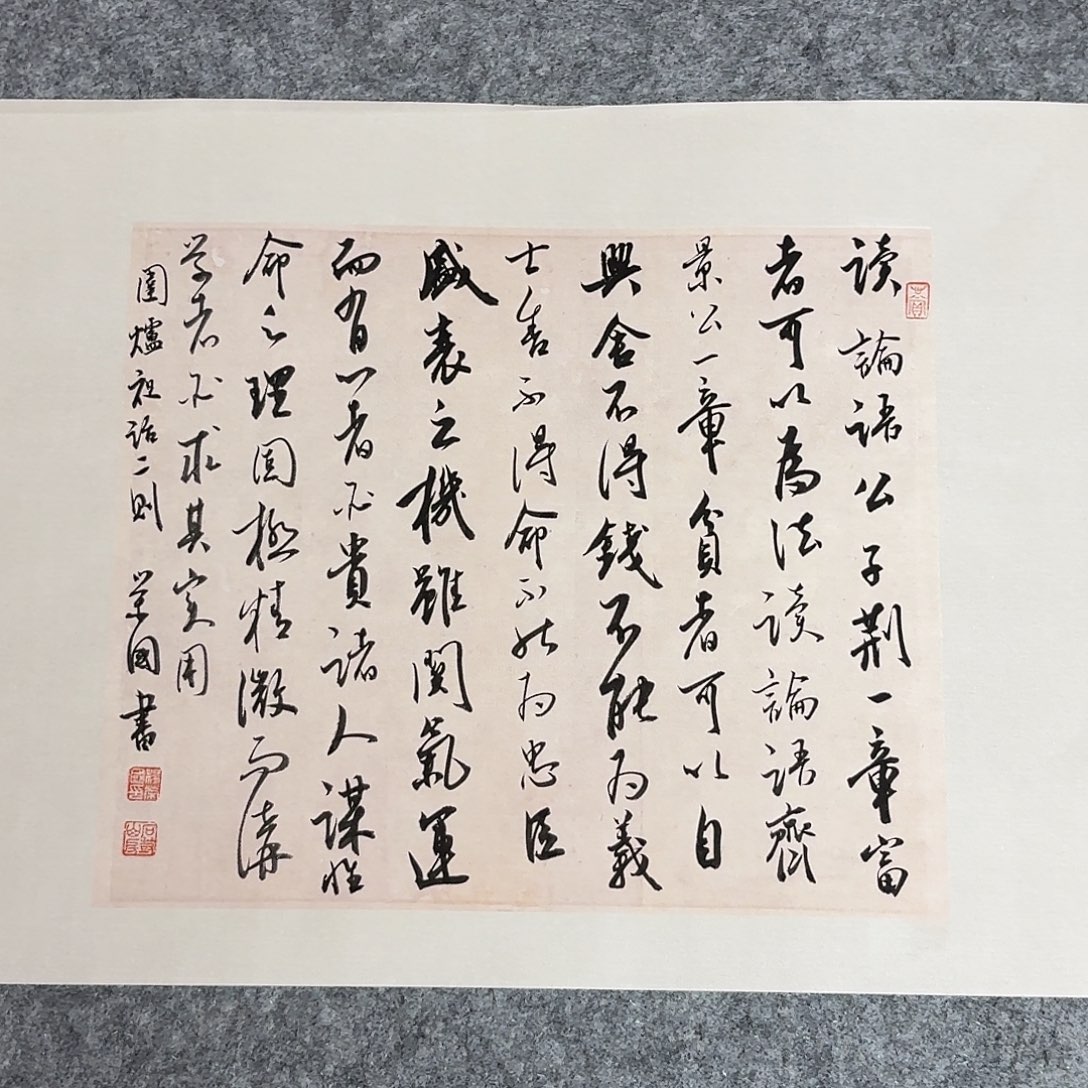 读論語公子荆一章富
者可以為法读論語齊
景公一章貧者可以自
興舍不得錢不能为義
士舍不得命不能为忠臣
盛衰之機雖関氣運
而有心者必貴諸人謀性
命之理固極精微而講
学者必求其实用
圍爐夜话二則 荣國書